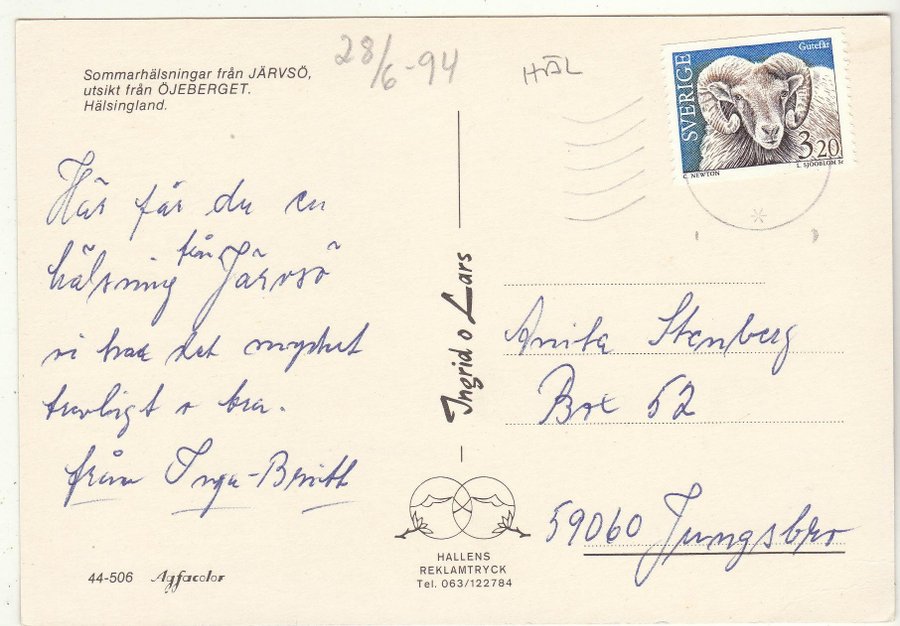 Sommarhälsningar från JÄRVSÖ,
utsikt från ÖJEBERGET.
Hälsingland.
28/6-94
HÄL
SVERIGE
Gutefår
3.20
C. NEWTON
L. SJÖÖBLOM Sc
Här får du en
hälsning från Järvsö
vi har det mycket
trevligt o bra.
från Inga-Britt
Ingrid o Lars
Anita Stenberg
Box 52
59060 Jungsbro
44-506 Agfacolor
HALLENS
REKLAMTRYCK
Tel. 063/122784